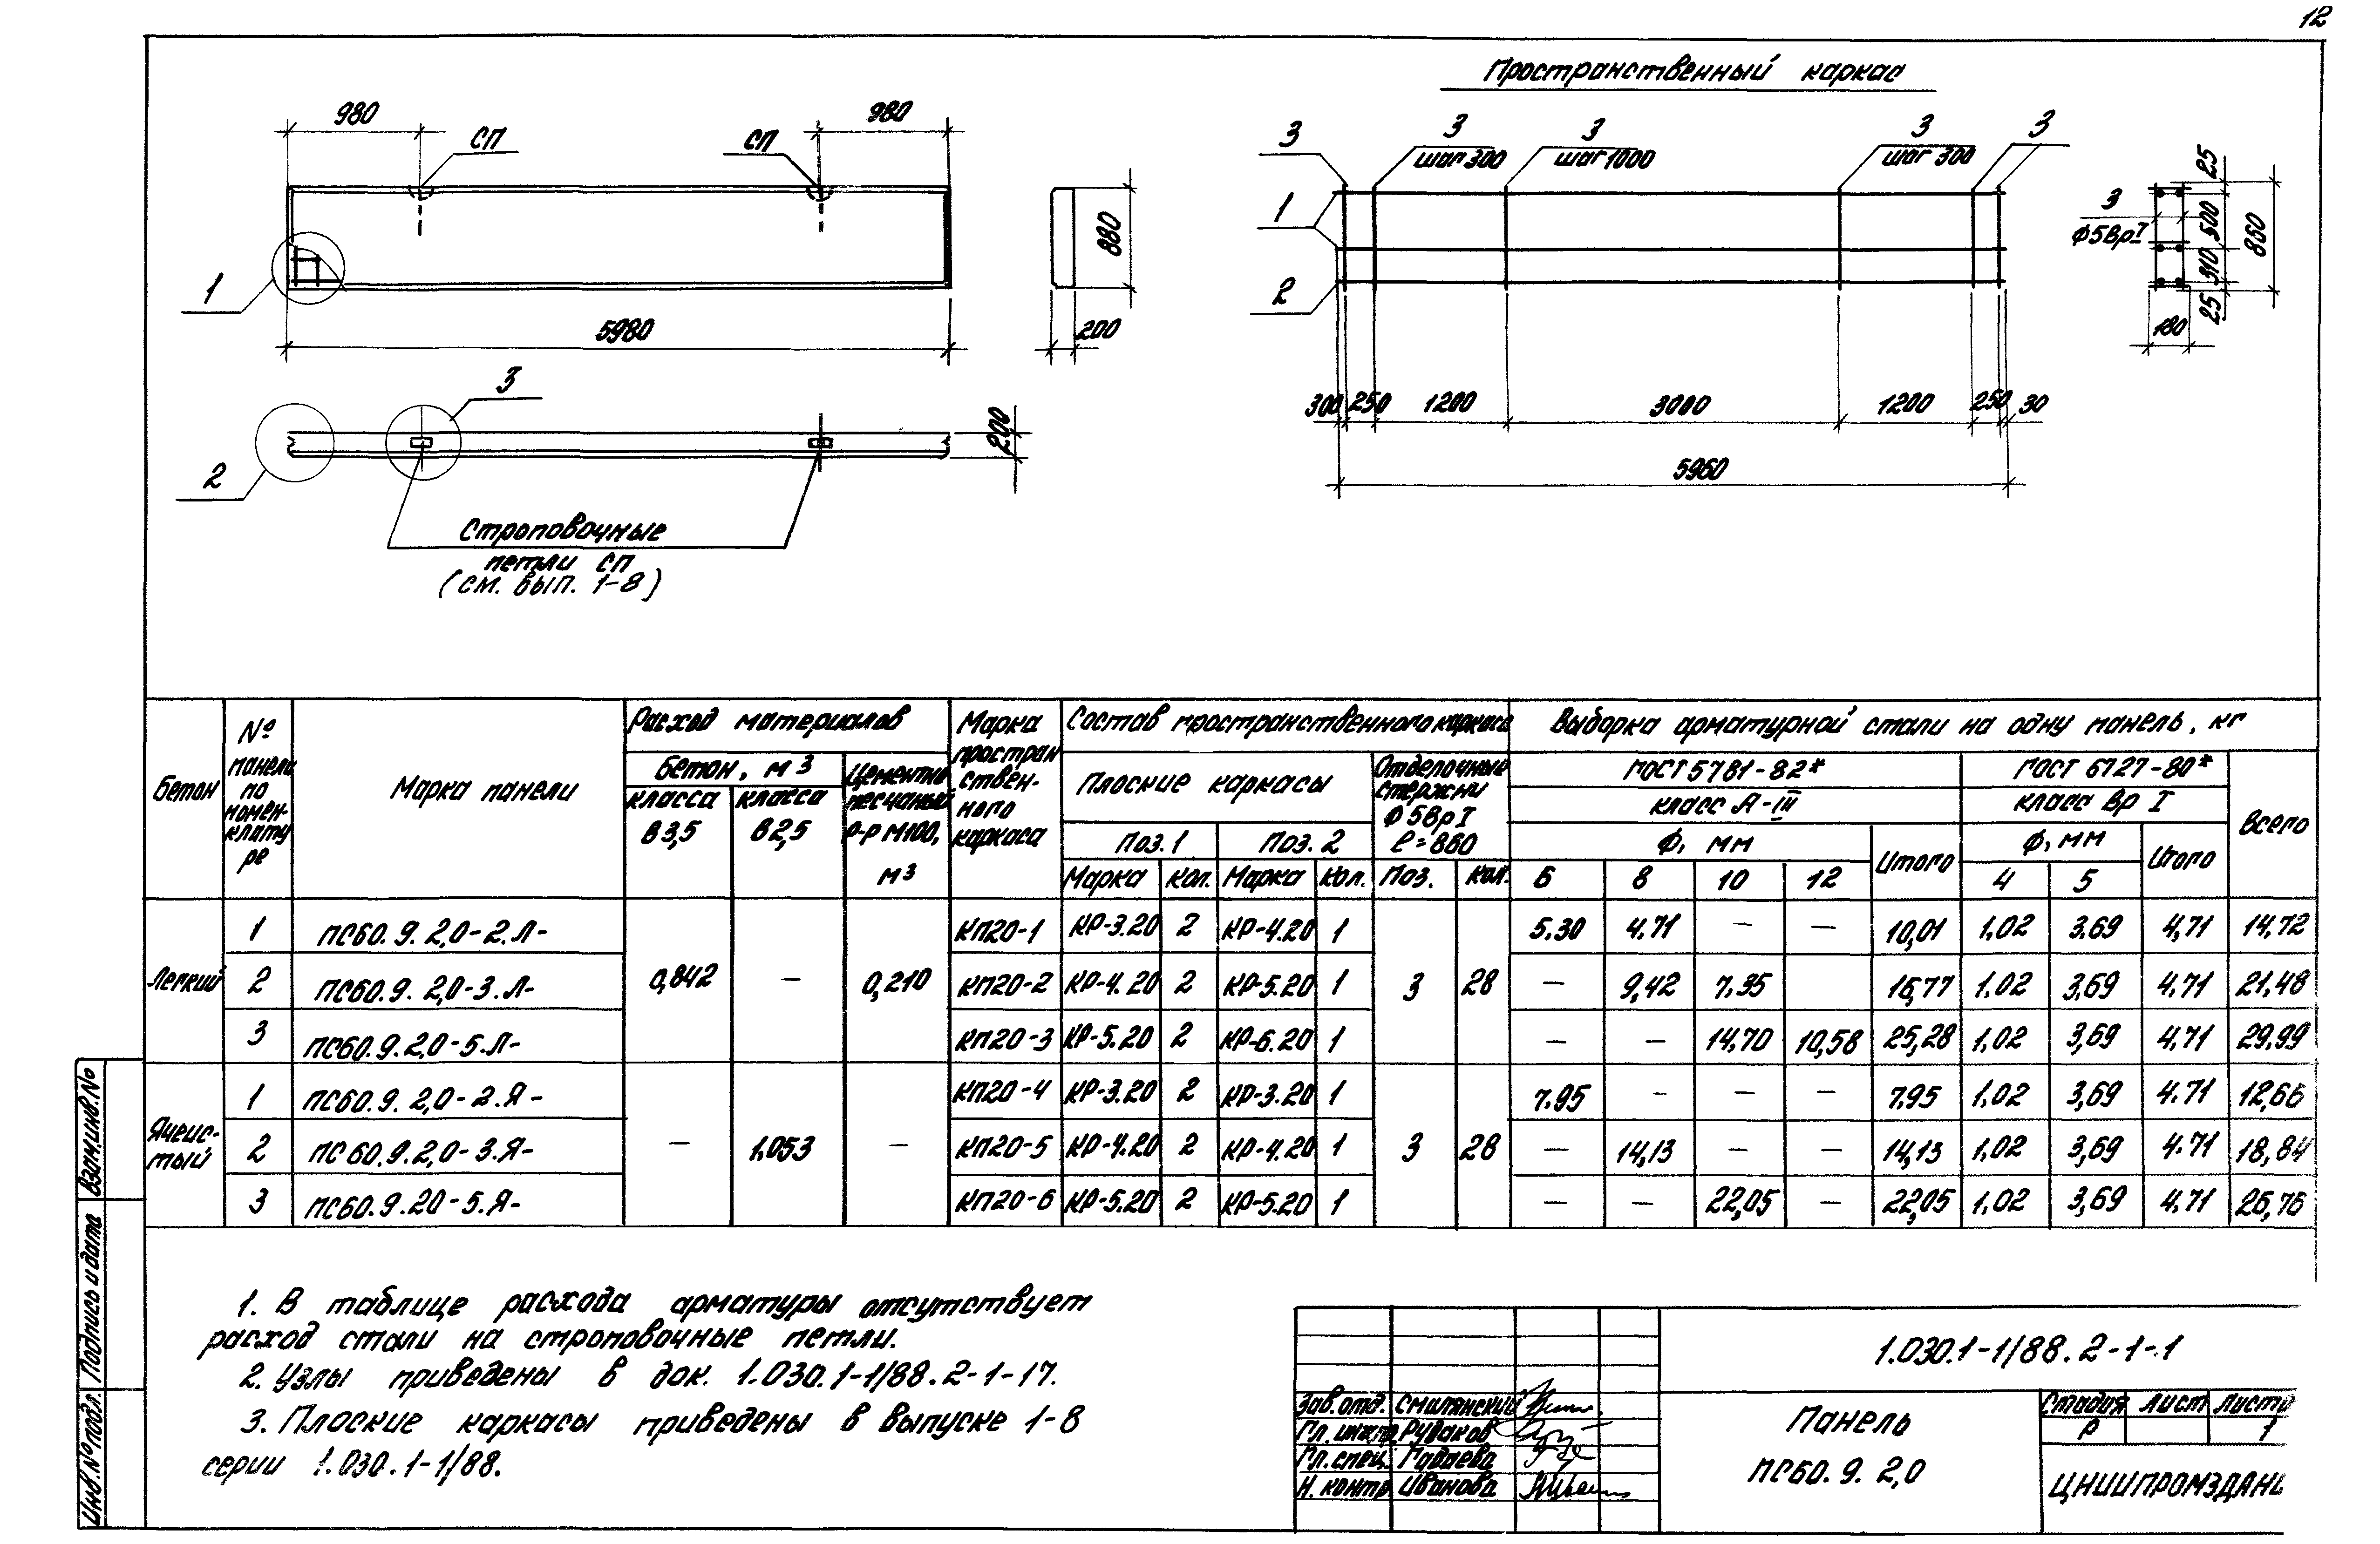 12
Пространственный каркас
980
980
СП
СП
1
5980
880
200
3
2
200
Строповочные
петли СП
(см. вып. 1-8)
3
3
шаг 300
3
шаг 1000
3
шаг 300
3
1
2
300 250 1200 3000 1200 250 30
5960
3
Ф5ВрI
25
500
310
25
860
180
Бетон
№ панели по номенклатуре
Марка панели
Расход материалов
Бетон, м3
класса В3,5
класса В2,5
Цементно песчаный р-р М100, м3
Марка пространственного каркаса
Состав пространственного каркаса
Плоские каркасы
Поз. 1
Поз. 2
Марка кол. Марка кол.
Отделочные стержни Ф5ВрI ℓ=860
Поз. кол.
Выборка арматурной стали на одну панель, кг
ГОСТ 5781-82*
класс А-III
Ф, мм
6 8 10 12
Итого
ГОСТ 6727-80*
класс Вр I
Ф, мм
4 5
Итого
Всего
Легкий
0,842 — 0,210
3 28
1 ПС60.9.2,0-2.Л- КП20-1 КР-3.20 2 КР-4.20 1 5.30 4.71 — — 10,01 1.02 3.69 4,71 14,72
2 ПС60.9.2,0-3.Л- КП20-2 КР-4.20 2 КР-5.20 1 — 9,42 7.35 16,77 1.02 3,69 4.71 21,48
3 ПС60.9.2,0-5.Л- КП20-3 КР-5.20 2 КР-6.20 1 — — 14,70 10,58 25,28 1,02 3,69 4.71 29,99
Ячеистый
— 1.053 —
3 28
1 ПС60.9.2,0-2.Я- КП20-4 КР-3.20 2 КР-3.20 1 7.95 — — — 7.95 1.02 3,69 4.71 12,66
2 ПС60.9.2,0-3.Я- КП20-5 КР-4.20 2 КР-4.20 1 — 14,13 — — 14,13 1.02 3,69 4.71 18,84
3 ПС60.9.20-5.Я- КП20-6 КР-5.20 2 КР-5.20 1 — — 22,05 — 22,05 1.02 3,69 4.71 26,76
1. В таблице расхода арматуры отсутствует
расход стали на строповочные петли.
2. Узлы приведены в док. 1.030.1-1/88.2-1-17.
3. Плоские каркасы приведены в выпуске 1-8
серии 1.030.1-1/88.
Взам.инв.№
Подпись и дата
Инв.№подл.
1.030.1-1/88.2-1-1
Зав.отд. Смилянский
Гл.инж.пр. Рудаков
Гл.спец. Гадаева
Н. контр. Иванова
Панель
ПС60.9.2,0
Стадия Лист Листо
Р 1
ЦНИИПРОМЗДАНИ